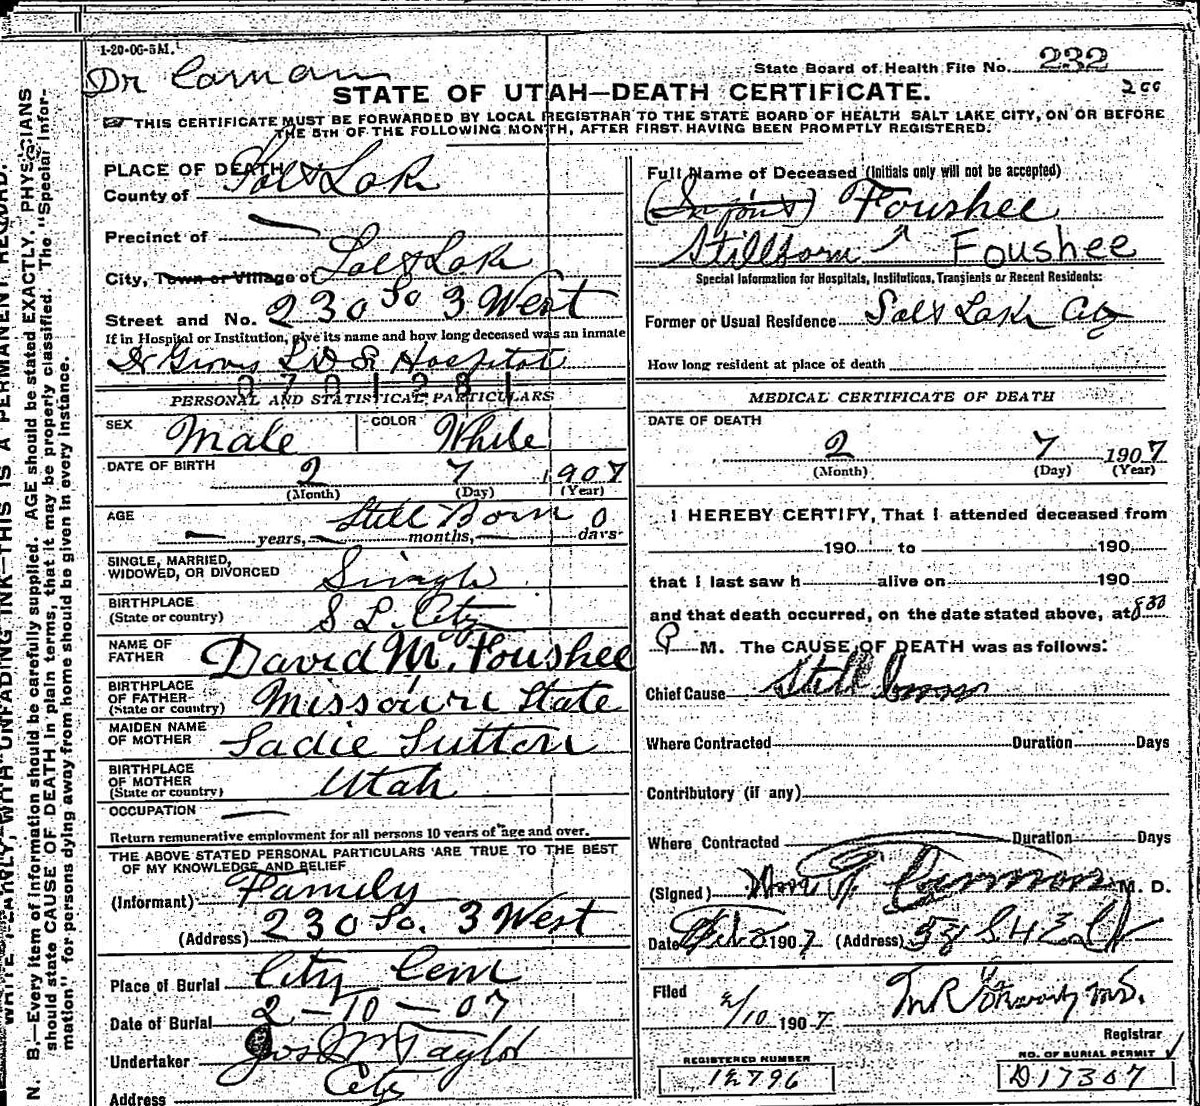 1-20-06-5M.
Dr Cannon
State Board of Health File No. 232
STATE OF UTAH—DEATH CERTIFICATE.
200
THIS CERTIFICATE MUST BE FORWARDED BY LOCAL REGISTRAR TO THE STATE BOARD OF HEALTH SALT LAKE CITY, ON OR BEFORE
THE 5TH OF THE FOLLOWING MONTH, AFTER FIRST HAVING BEEN PROMPTLY REGISTERED.
PLACE OF DEATH
County of Salt Lake
Precinct of —
City, Town or Village of Salt Lake
Street and No. 230 So. 3 West
If in Hospital or Institution, give its name and how long deceased was an inmate
Dr Groves L D S Hospital
0701281
PERSONAL AND STATISTICAL PARTICULARS
SEX Male COLOR White
DATE OF BIRTH 2 7 1907
(Month) (Day) (Year)
AGE Still Born 0
— years, — months, — days
SINGLE, MARRIED,
WIDOWED, OR DIVORCED Single
BIRTHPLACE
(State or country) S L City
NAME OF
FATHER David M. Foushee
BIRTHPLACE
OF FATHER
(State or country) Missouri State
MAIDEN NAME
OF MOTHER Sadie Sutton
BIRTHPLACE
OF MOTHER
(State or country) Utah
OCCUPATION —
Return remunerative employment for all persons 10 years of age and over.
THE ABOVE STATED PERSONAL PARTICULARS ARE TRUE TO THE BEST
OF MY KNOWLEDGE AND BELIEF
(Informant) Family
(Address) 230 So. 3 West
Place of Burial City Cem
Date of Burial 2-10-07
Undertaker Jos Wm Taylor
Address City
Full Name of Deceased (Initials only will not be accepted)
(Infant) Foushee
Stillborn ^ Foushee
Special Information for Hospitals, Institutions, Transients or Recent Residents:
Former or Usual Residence Salt Lake City
How long resident at place of death
MEDICAL CERTIFICATE OF DEATH
DATE OF DEATH
2 7 1907
(Month) (Day) (Year)
I HEREBY CERTIFY, That I attended deceased from
190 to 190
that I last saw h alive on 190
and that death occurred, on the date stated above, at 8 30
P M. The CAUSE OF DEATH was as follows:
Chief Cause Still born
Where Contracted Duration Days
Contributory (if any)
Where Contracted Duration Days
(Signed) Wm Cannon M. D.
Date Feb 8 1907 (Address)
Filed 2/10 1907 M.D.
Registrar
REGISTERED NUMBER
12796
NO. OF BURIAL PERMIT
D17307
WRITE PLAINLY, WITH UNFADING INK—THIS IS A PERMANENT RECORD.
N. B.—Every item of information should be carefully supplied. AGE should be stated EXACTLY. PHYSICIANS
should state CAUSE OF DEATH in plain terms, that it may be properly classified. The "Special Infor-
mation" for persons dying away from home should be given in every instance.